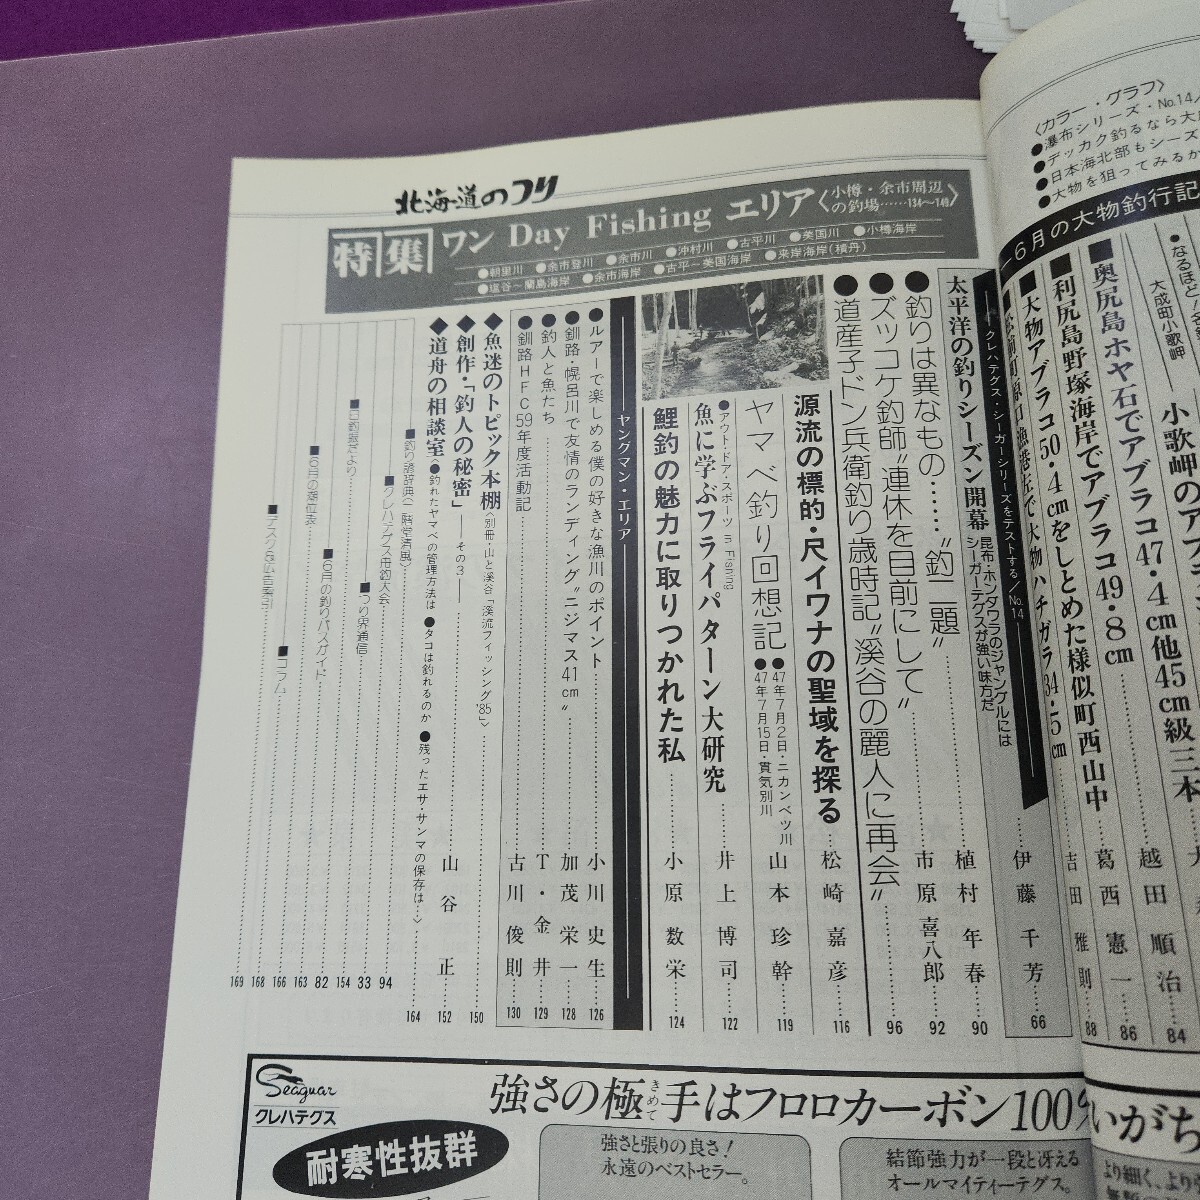 〈カラー・グラフ〉
●瀑布シリーズ・No.14
●デッカク釣るなら大
●日本海北部もシーズ
●大物を狙ってみるか
6月の大物釣行記
●なるほど
大成町小歌岬
小歌岬のアブラ
コ47・4cm他45cm級三本
越田順治 84
■奥尻島ホヤ石でアブラコ47・4cm他45cm級三本
■利尻島野塚海岸でアブラコ49・8cm……葛西憲一 86
■大物アブラコ50・4cmをしとめた様似町西山中
吉田雅則 88
漁港左で大物ハチガラ34・5cm
北海道のつり
特集 ワン Day Fishing エリア〈小樽・余市周辺の釣場……134〜149〉
●朝里川 ●余市登川 ●余市川 ●沖村川 ●古平川 ●美国川 ●小樽海岸
●塩谷〜蘭島海岸 ●余市海岸 ●古平〜美国海岸 ●来岸海岸(積丹)
クレハテグス・シーガーシリーズをテストする/No.14
昆布・ホンダワラのジャングルには
シーガーテグスが強い味方だ
……伊藤千芳……66
太平洋の釣りシーズン開幕……植村年春……90
●釣りは異なもの……“釣二題”……市原喜八郎……92
●ズッコケ釣師“連休を目前にして”……96
●道産子ドン兵衛釣り歳時記“渓谷の麗人に再会”
源流の標的・尺イワナの聖域を探る……松崎嘉彦……116
ヤマベ釣り回想記
●47年7月2日・ニカンベツ川
●47年7月15日・貫気別川
山本珍幹……119
●アウト・ドア・スポーツ in Fishing
魚に学ぶフライパターン大研究……井上博司……122
鯉釣の魅力に取りつかれた私……小原数栄……124
ヤングマン・エリア
●ルアーで楽しめる僕の好きな漁川のポイント……小川史生……126
●釧路・幌呂川で友情のランディング“ニジマス41cm”……加茂栄一……128
●釣人と魚たち……T・金井……129
●釧路HFC59年度活動記……古川俊則……130
◆魚迷のトピック本棚〈別冊・山と溪谷「渓流フィッシング'85」〉……150
◆創作・「釣人の秘密」——その3——……山谷正……152
◆道舟の相談室〈●釣れたヤマベの管理方法は ●タコは釣れるのか ●残ったエサ・サンマの保存は…〉……164
■釣り語辞典(二階堂清風)……94
■クレハテグス舟釣大会……33
■つり界通信……154
■6月の釣りバスガイド……82
■6月の潮位表……163
■コラム……166
168
169
Seaguar
クレハテグス
強さの極手(きめて)はフロロカーボン100%
耐寒性抜群
強さと張りの良さ!
永遠のベストセラー。
結節強力が一段と冴える
オールマイティーテグス。
いがち
より細く、より